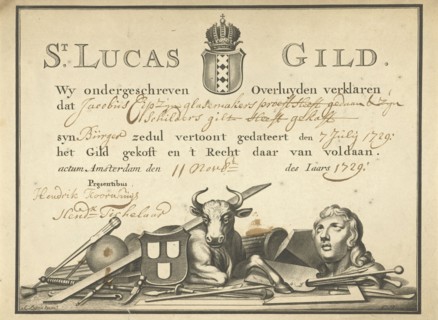 ST. LUCAS GILD.
Wy ondergeschreven Overluyden verklaren
dat Jacobus zyn glasemakers proeff heeft gedaan & zyn
schilders gilt heeft gekoft
syn Burger zedul vertoont gedateert den 7 July 1729:
het Gild gekoft en t Recht daar van voldaan.
actum Amsterdam den 11 des Iaars 1729:
Præsentibus
Hendrik
Hendk Tichelaar